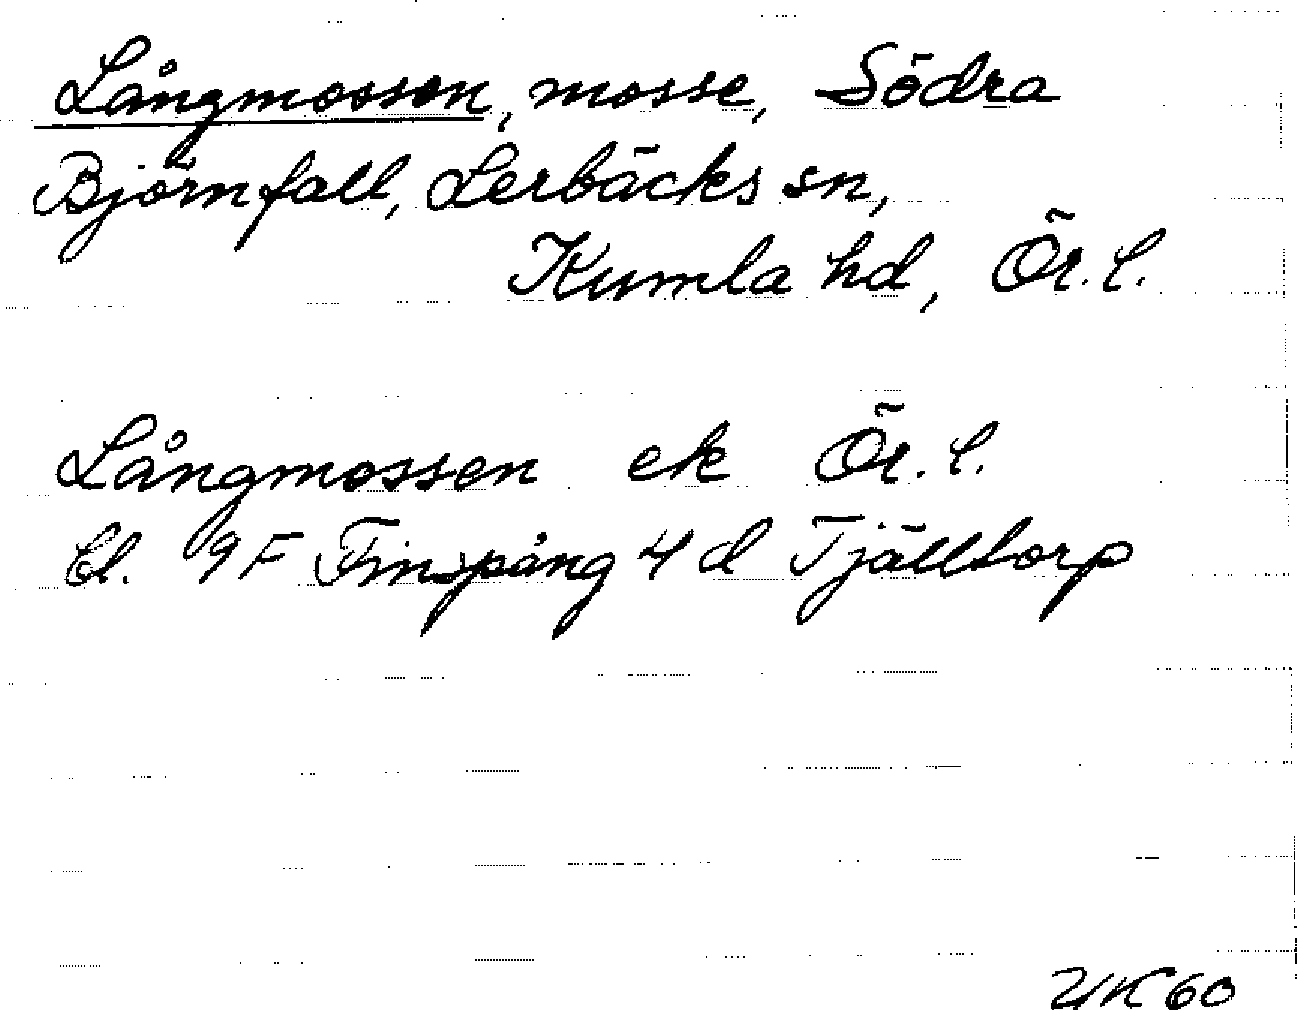 Långmossen, mosse, Södra
Björnfall, Lerbäcks sn,
Kumla hd, Ör. l.
Långmossen ek Ör. l.
Bl. 9F Finspång 4 d Tjälltorp
UK 60